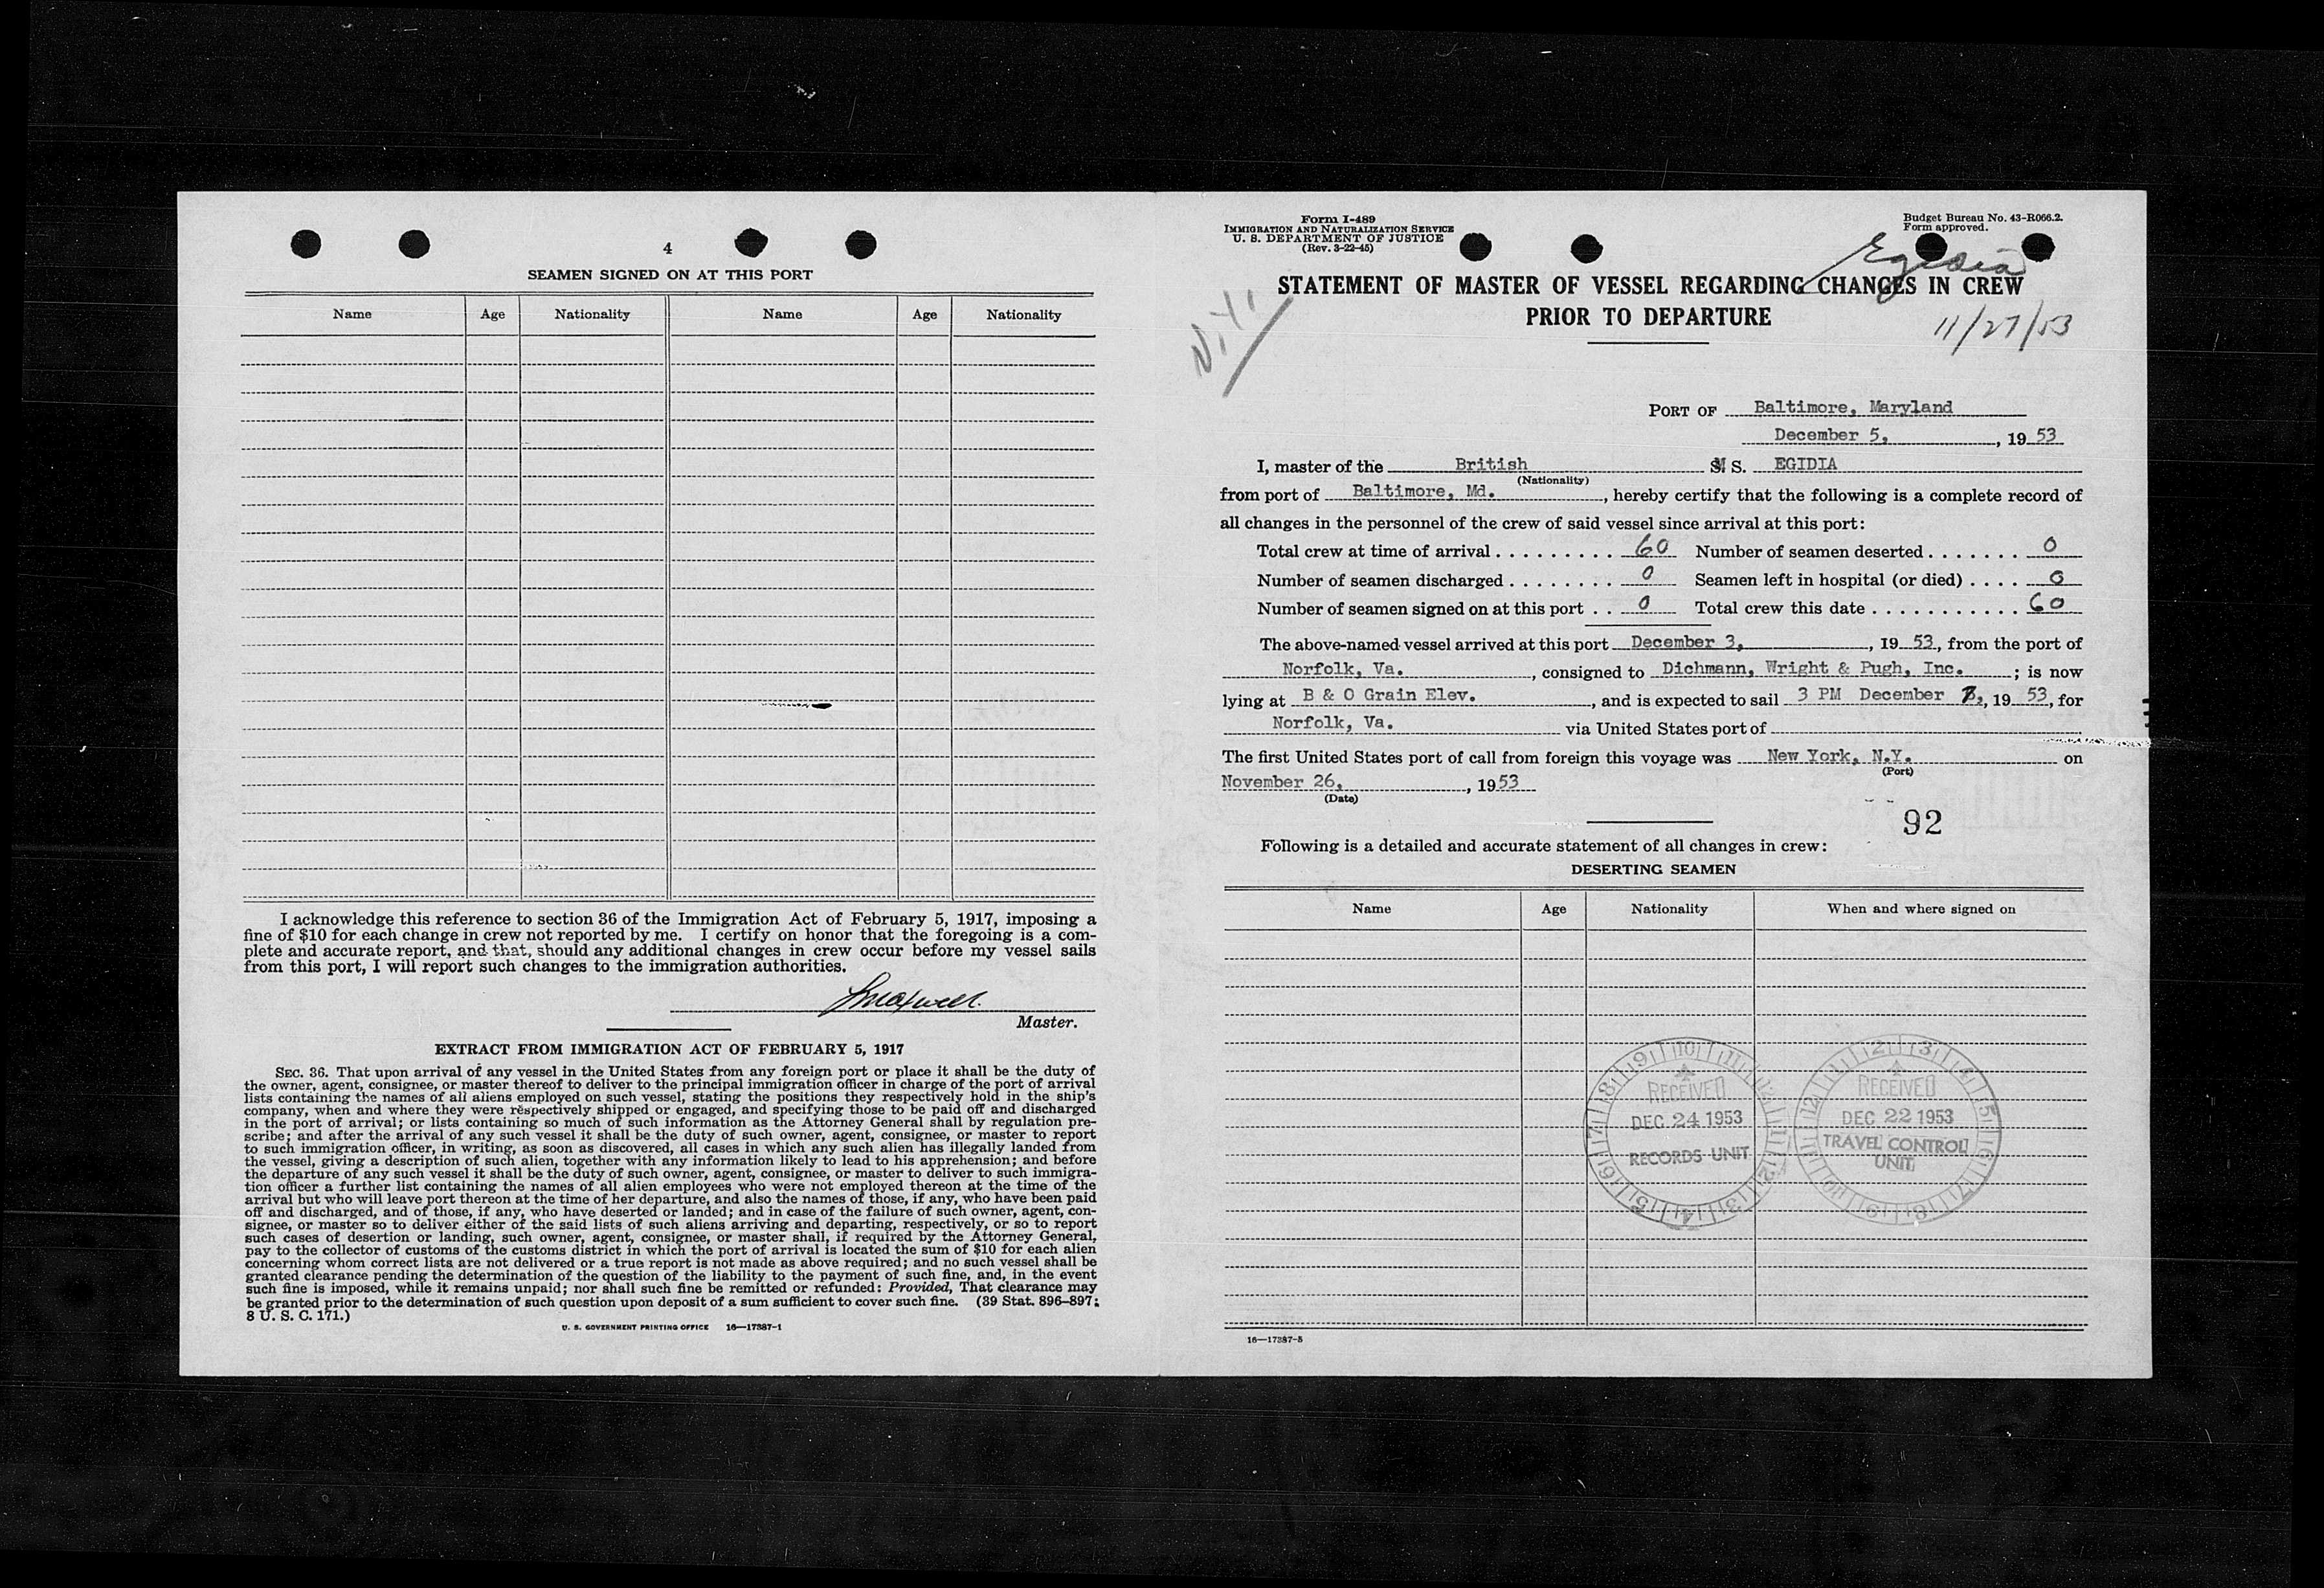 4
SEAMEN SIGNED ON AT THIS PORT
Name Age Nationality Name Age Nationality
I acknowledge this reference to section 36 of the Immigration Act of February 5, 1917, imposing a
fine of $10 for each change in crew not reported by me. I certify on honor that the foregoing is a com-
plete and accurate report, and that, should any additional changes in crew occur before my vessel sails
from this port, I will report such changes to the immigration authorities.
Master.
EXTRACT FROM IMMIGRATION ACT OF FEBRUARY 5, 1917
SEC. 36. That upon arrival of any vessel in the United States from any foreign port or place it shall be the duty of
the owner, agent, consignee, or master thereof to deliver to the principal immigration officer in charge of the port of arrival
lists containing the names of all aliens employed on such vessel, stating the positions they respectively hold in the ship's
company, when and where they were respectively shipped or engaged, and specifying those to be paid off and discharged
in the port of arrival; or lists containing so much of such information as the Attorney General shall by regulation pre-
scribe; and after the arrival of any such vessel it shall be the duty of such owner, agent, consignee, or master to report
to such immigration officer, in writing, as soon as discovered, all cases in which any such alien has illegally landed from
the vessel, giving a description of such alien, together with any information likely to lead to his apprehension; and before
the departure of any such vessel it shall be the duty of such owner, agent, consignee, or master to deliver to such immigra-
tion officer a further list containing the names of all alien employees who were not employed thereon at the time of the
arrival but who will leave port thereon at the time of her departure, and also the names of those, if any, who have been paid
off and discharged, and of those, if any, who have deserted or landed; and in case of the failure of such owner, agent, con-
signee, or master so to deliver either of the said lists of such aliens arriving and departing, respectively, or so to report
such cases of desertion or landing, such owner, agent, consignee, or master shall, if required by the Attorney General,
pay to the collector of customs of the customs district in which the port of arrival is located the sum of $10 for each alien
concerning whom correct lists are not delivered or a true report is not made as above required; and no such vessel shall be
granted clearance pending the determination of the question of the liability to the payment of such fine, and, in the event
such fine is imposed, while it remains unpaid; nor shall such fine be remitted or refunded: Provided, That clearance may
be granted prior to the determination of such question upon deposit of a sum sufficient to cover such fine. (39 Stat. 896–897;
8 U. S. C. 171.)
U. S. GOVERNMENT PRINTING OFFICE 16—17387-1
Form I-489
IMMIGRATION AND NATURALIZATION SERVICE
U. S. DEPARTMENT OF JUSTICE
(Rev. 3-22-45)
Budget Bureau No. 43-R066.2.
Form approved.
Egidia
STATEMENT OF MASTER OF VESSEL REGARDING CHANGES IN CREW
PRIOR TO DEPARTURE
11/27/53
N.Y.
PORT OF Baltimore, Maryland
December 5, , 19 53
I, master of the British M S. EGIDIA
(Nationality)
from port of Baltimore, Md. , hereby certify that the following is a complete record of
all changes in the personnel of the crew of said vessel since arrival at this port:
Total crew at time of arrival . . . . . . . . . 60 Number of seamen deserted . . . . . . . 0
Number of seamen discharged . . . . . . . . 0 Seamen left in hospital (or died) . . . . 0
Number of seamen signed on at this port . . 0 Total crew this date . . . . . . . . . . . . 60
The above-named vessel arrived at this port December 3, , 19 53, from the port of
Norfolk, Va. , consigned to Dichmann, Wright & Pugh, Inc. ; is now
lying at B & O Grain Elev. , and is expected to sail 3 PM December 7, 19 53, for
Norfolk, Va. via United States port of
The first United States port of call from foreign this voyage was New York, N.Y. on
(Port)
November 26, , 1953
(Date)
92
Following is a detailed and accurate statement of all changes in crew:
DESERTING SEAMEN
Name Age Nationality When and where signed on
RECEIVED
DEC 24 1953
RECORDS UNIT
RECEIVED
DEC 22 1953
TRAVEL CONTROL
UNIT
16—17387-5